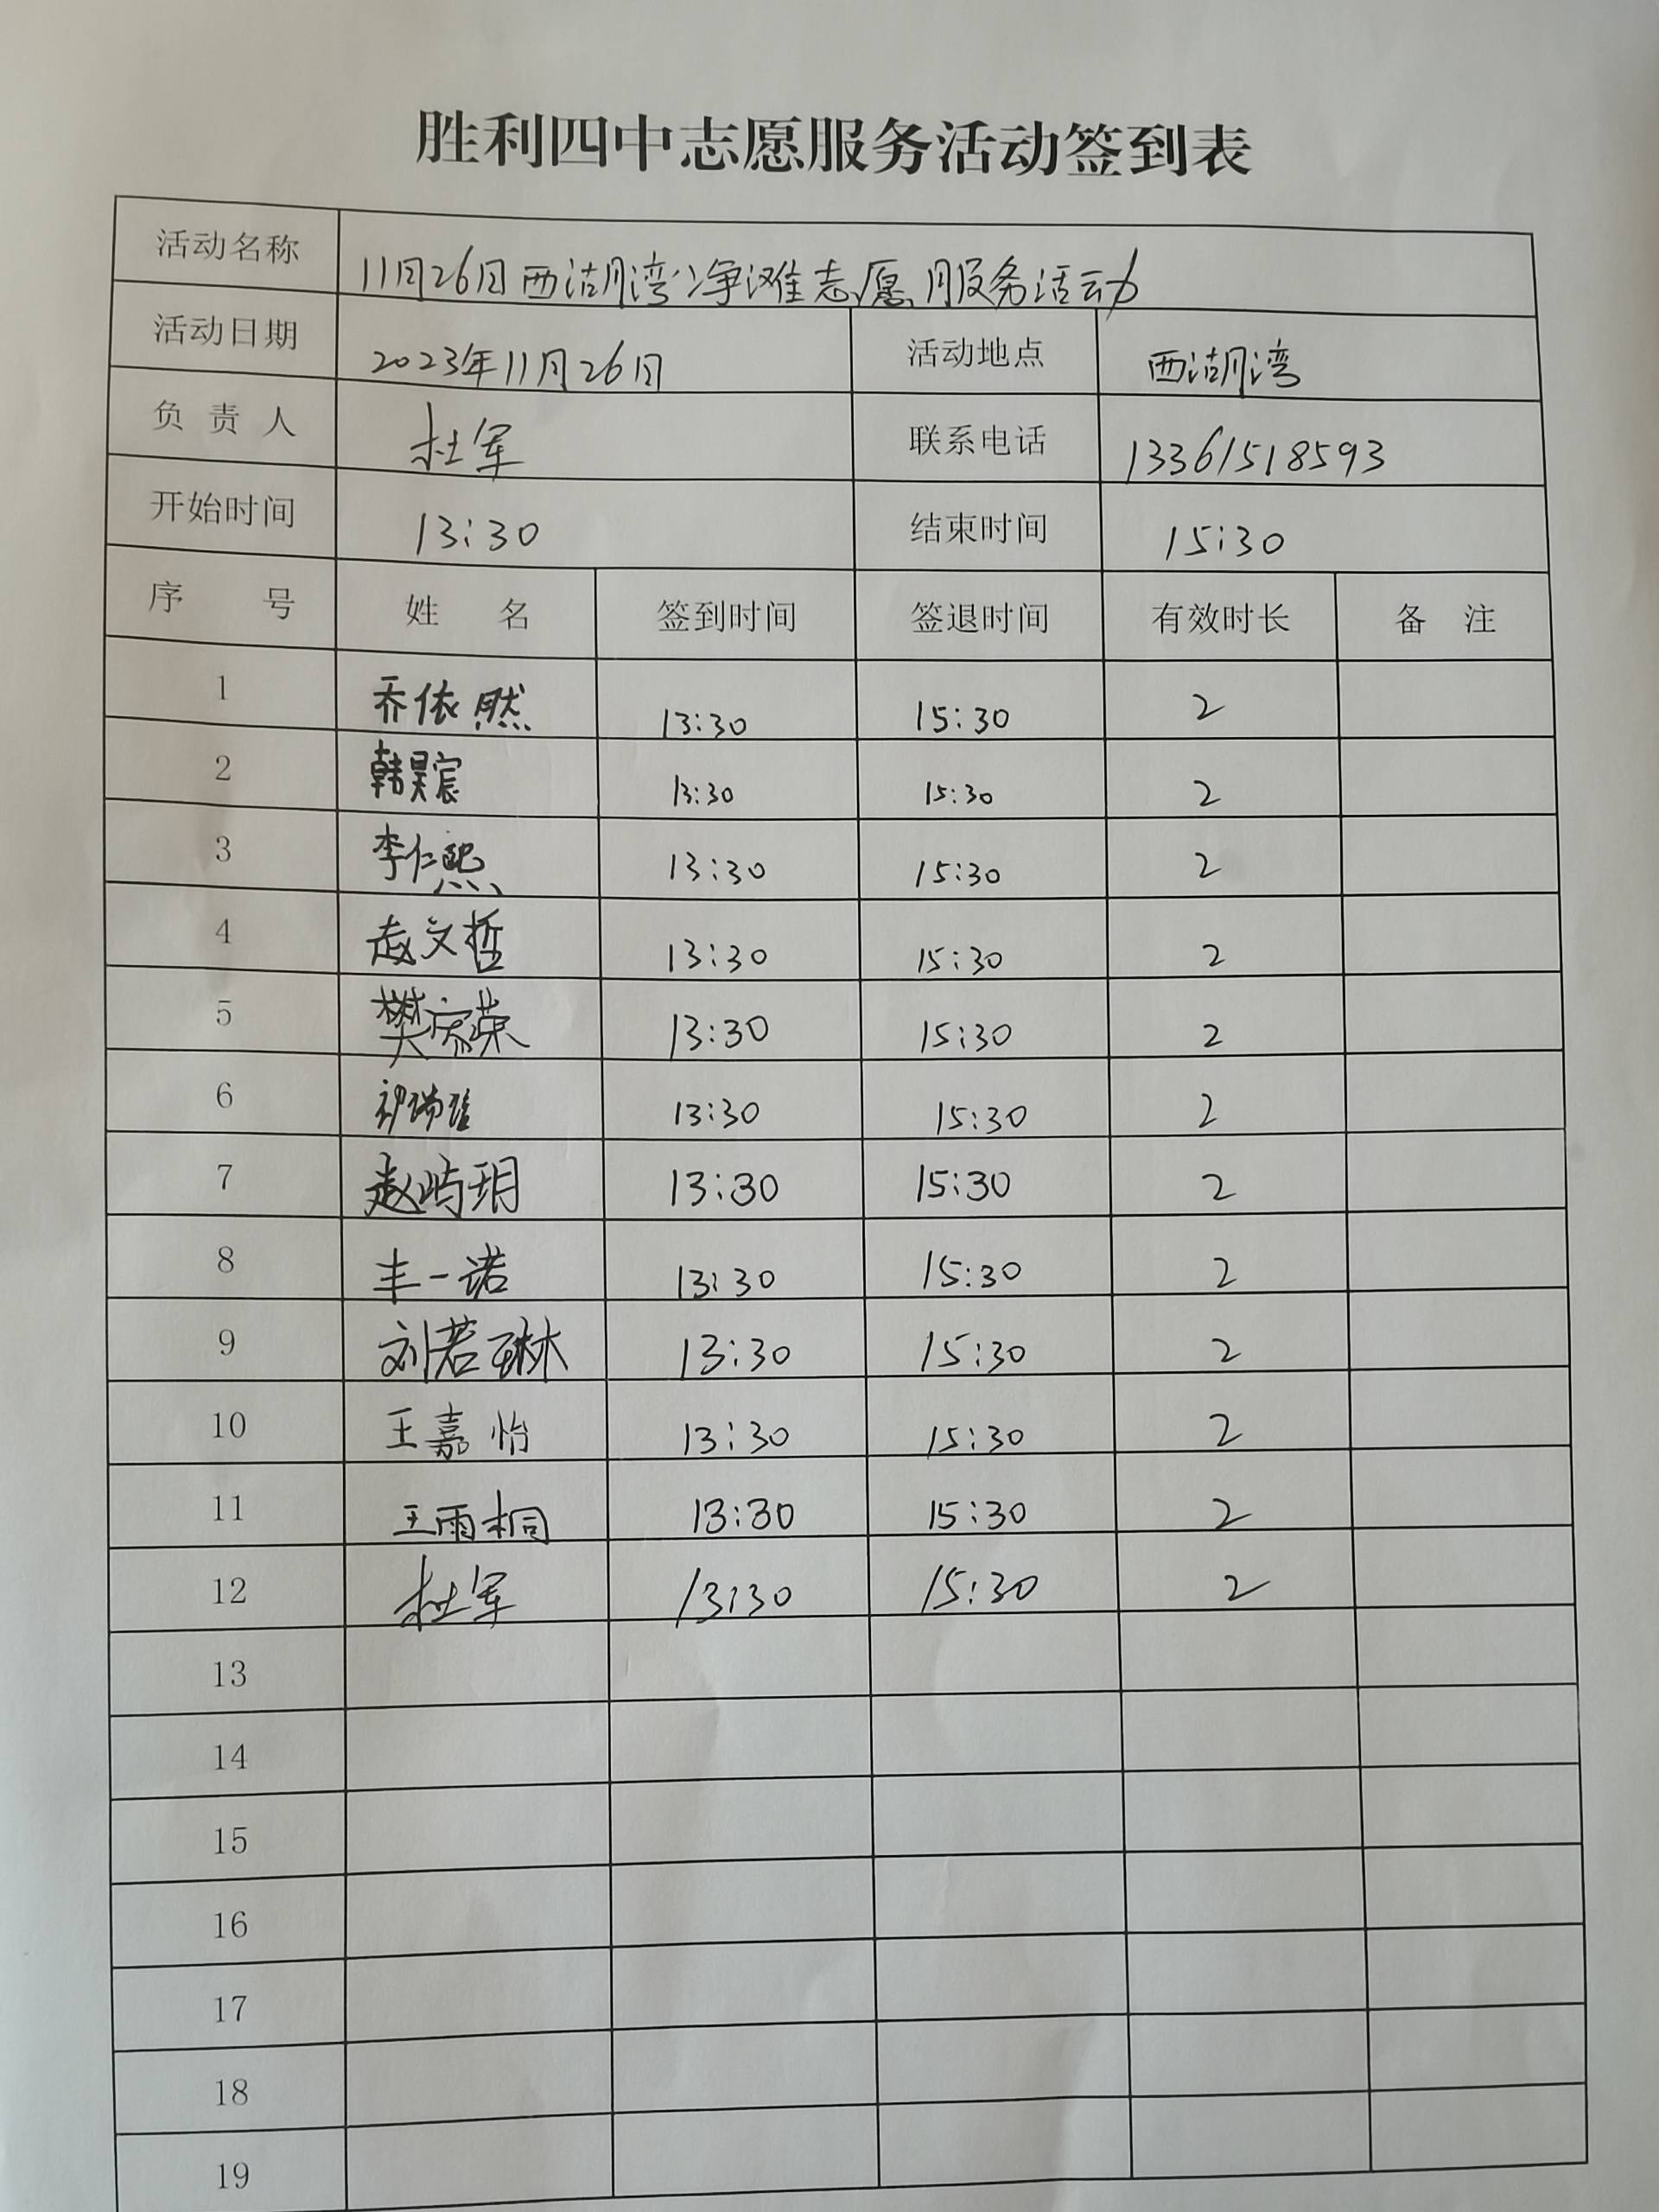 胜利四中志愿服务活动签到表
活动名称 11月26日西湖湾净滩志愿服务活动
活动日期 2023年11月26日 活动地点 西湖湾
负责人 杜军 联系电话 13361518593
开始时间 13:30 结束时间 15:30
序号 姓名 签到时间 签退时间 有效时长 备注
1 乔依然 13:30 15:30 2
2 韩昊宸 13:30 15:30 2
3 李仁熙 13:30 15:30 2
4 赵文哲 13:30 15:30 2
5 13:30 15:30 2
6 13:30 15:30 2
7 赵屿玥 13:30 15:30 2
8 丰一诺 13:30 15:30 2
9 刘若琳 13:30 15:30 2
10 王嘉怡 13:30 15:30 2
11 王雨桐 13:30 15:30 2
12 杜军 13:30 15:30 2
13
14
15
16
17
18
19